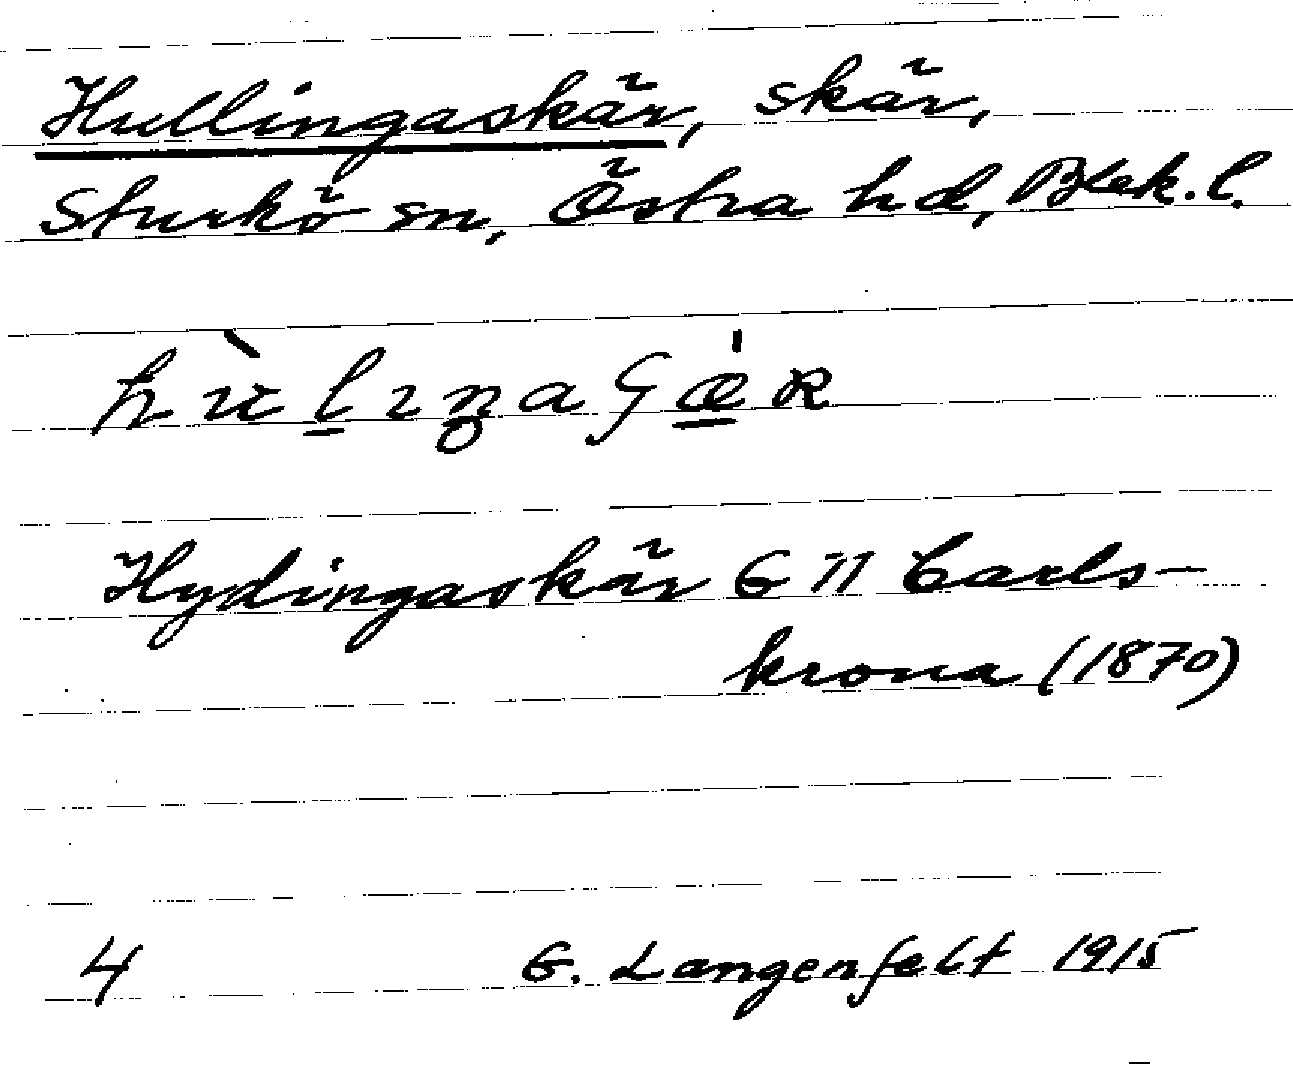 Hullingaskär, skär,
Sturkö sn, Östra hd, Blek. l.
Hydingaskär G 11 Carls-
krona (1870)
4 G. Langenfelt 1915